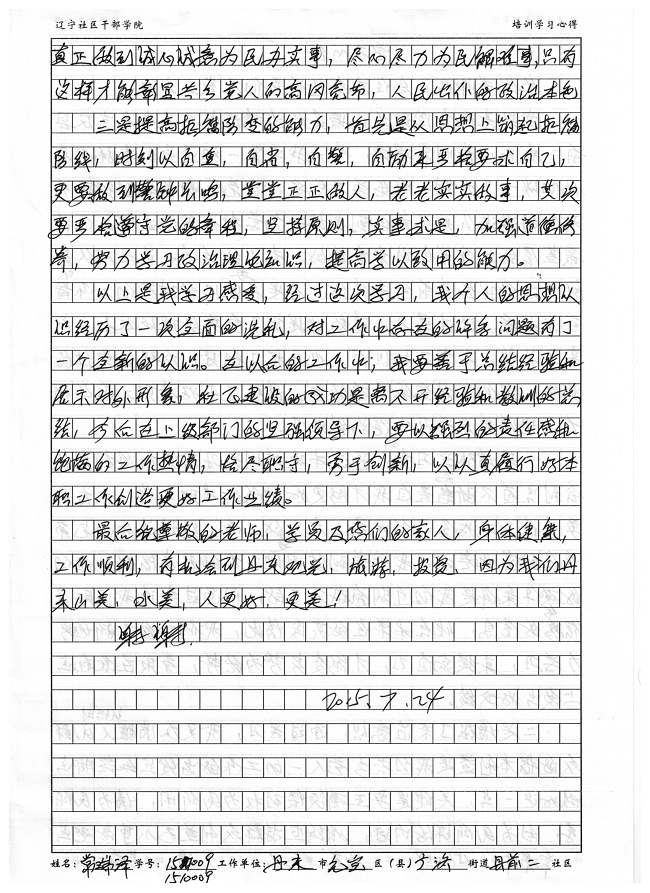 辽宁社区干部学院 培训学习心得
真正做到诚心诚意为民办实事，尽心尽力为民解难事，只有
这样才能彰显共产党人的高风亮节，人民公仆的政治本色
三是提高拒腐防变的能力，首先是从思想上筑起拒腐
防线，时刻以自重，自省，自警，自励来严格要求自己，
更要做到警钟长鸣，堂堂正正做人，老老实实做事，其次
要严格遵守党的章程，坚持原则，实事求是，加强道德修
养，努力学习政治理论知识，提高学以致用的能力。
以上是我学习感受，经过这次学习，我个人的思想认
识经历了一次全面的洗礼，对工作中存在的许多问题有了
一个全新的认识。在以后的工作中；我要善于总结经验和
展示对外形象，社区建设的成功是离不开经验和教训的总
结，今后在上级部门的坚强领导下，要以强烈的责任感和
饱满的工作热情，恪尽职守，勇于创新，以认真履行好本
职工作创造更好工作业绩。
最后祝尊敬的老师，学员及您们的家人，身体健康，
工作顺利，有机会到丹东观光，旅游，投资，因为我们丹
东山美，水美，人更好，更美！
谢谢.
2015.7.24
姓名：常瑞泽 学号：1510009 工作单位：丹东 市元宝 区（县）广济 街道县前二 社区
1510009